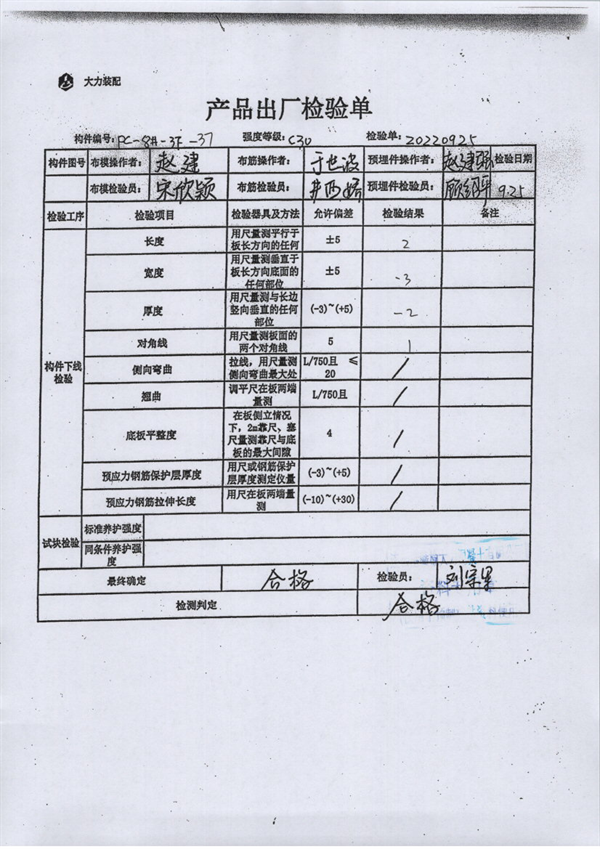 大力装配
产品出厂检验单
构件编号: PC-8#-3F-37 强度等级: C30 检验单: 20220925
构件图号 布模操作者: 赵建 布筋操作者: 于世波 预埋件操作者: 赵建强 检验日期
布模检验员: 宋欣颖 布筋检验员: 预埋件检验员: 9.25
检验工序 检验项目 检验器具及方法 允许偏差 检验结果 备注
构件下线检验
长度 用尺量测平行于板长方向的任何 ±5 2
宽度 用尺量测垂直于板长方向底面的任何部位 ±5 -3
厚度 用尺量测与长边竖向垂直的任何部位 (-3)~(+5) -2
对角线 用尺量测板面的两个对角线 5 1
侧向弯曲 拉线,用尺量测侧向弯曲最大处 L/750且 ≤20 /
翘曲 调平尺在板两端量测 L/750且 /
底板平整度 在板侧立情况下,2m靠尺、塞尺量测靠尺与底板的最大间隙 4 /
预应力钢筋保护层厚度 用尺或钢筋保护层厚度测定仪量 (-3)~(+5) /
预应力钢筋拉伸长度 用尺在板两端量测 (-10)~(+30) /
试块检验 标准养护强度
同条件养护强度
最终确定 合格 检验员: 刘宗果
检测判定 合格